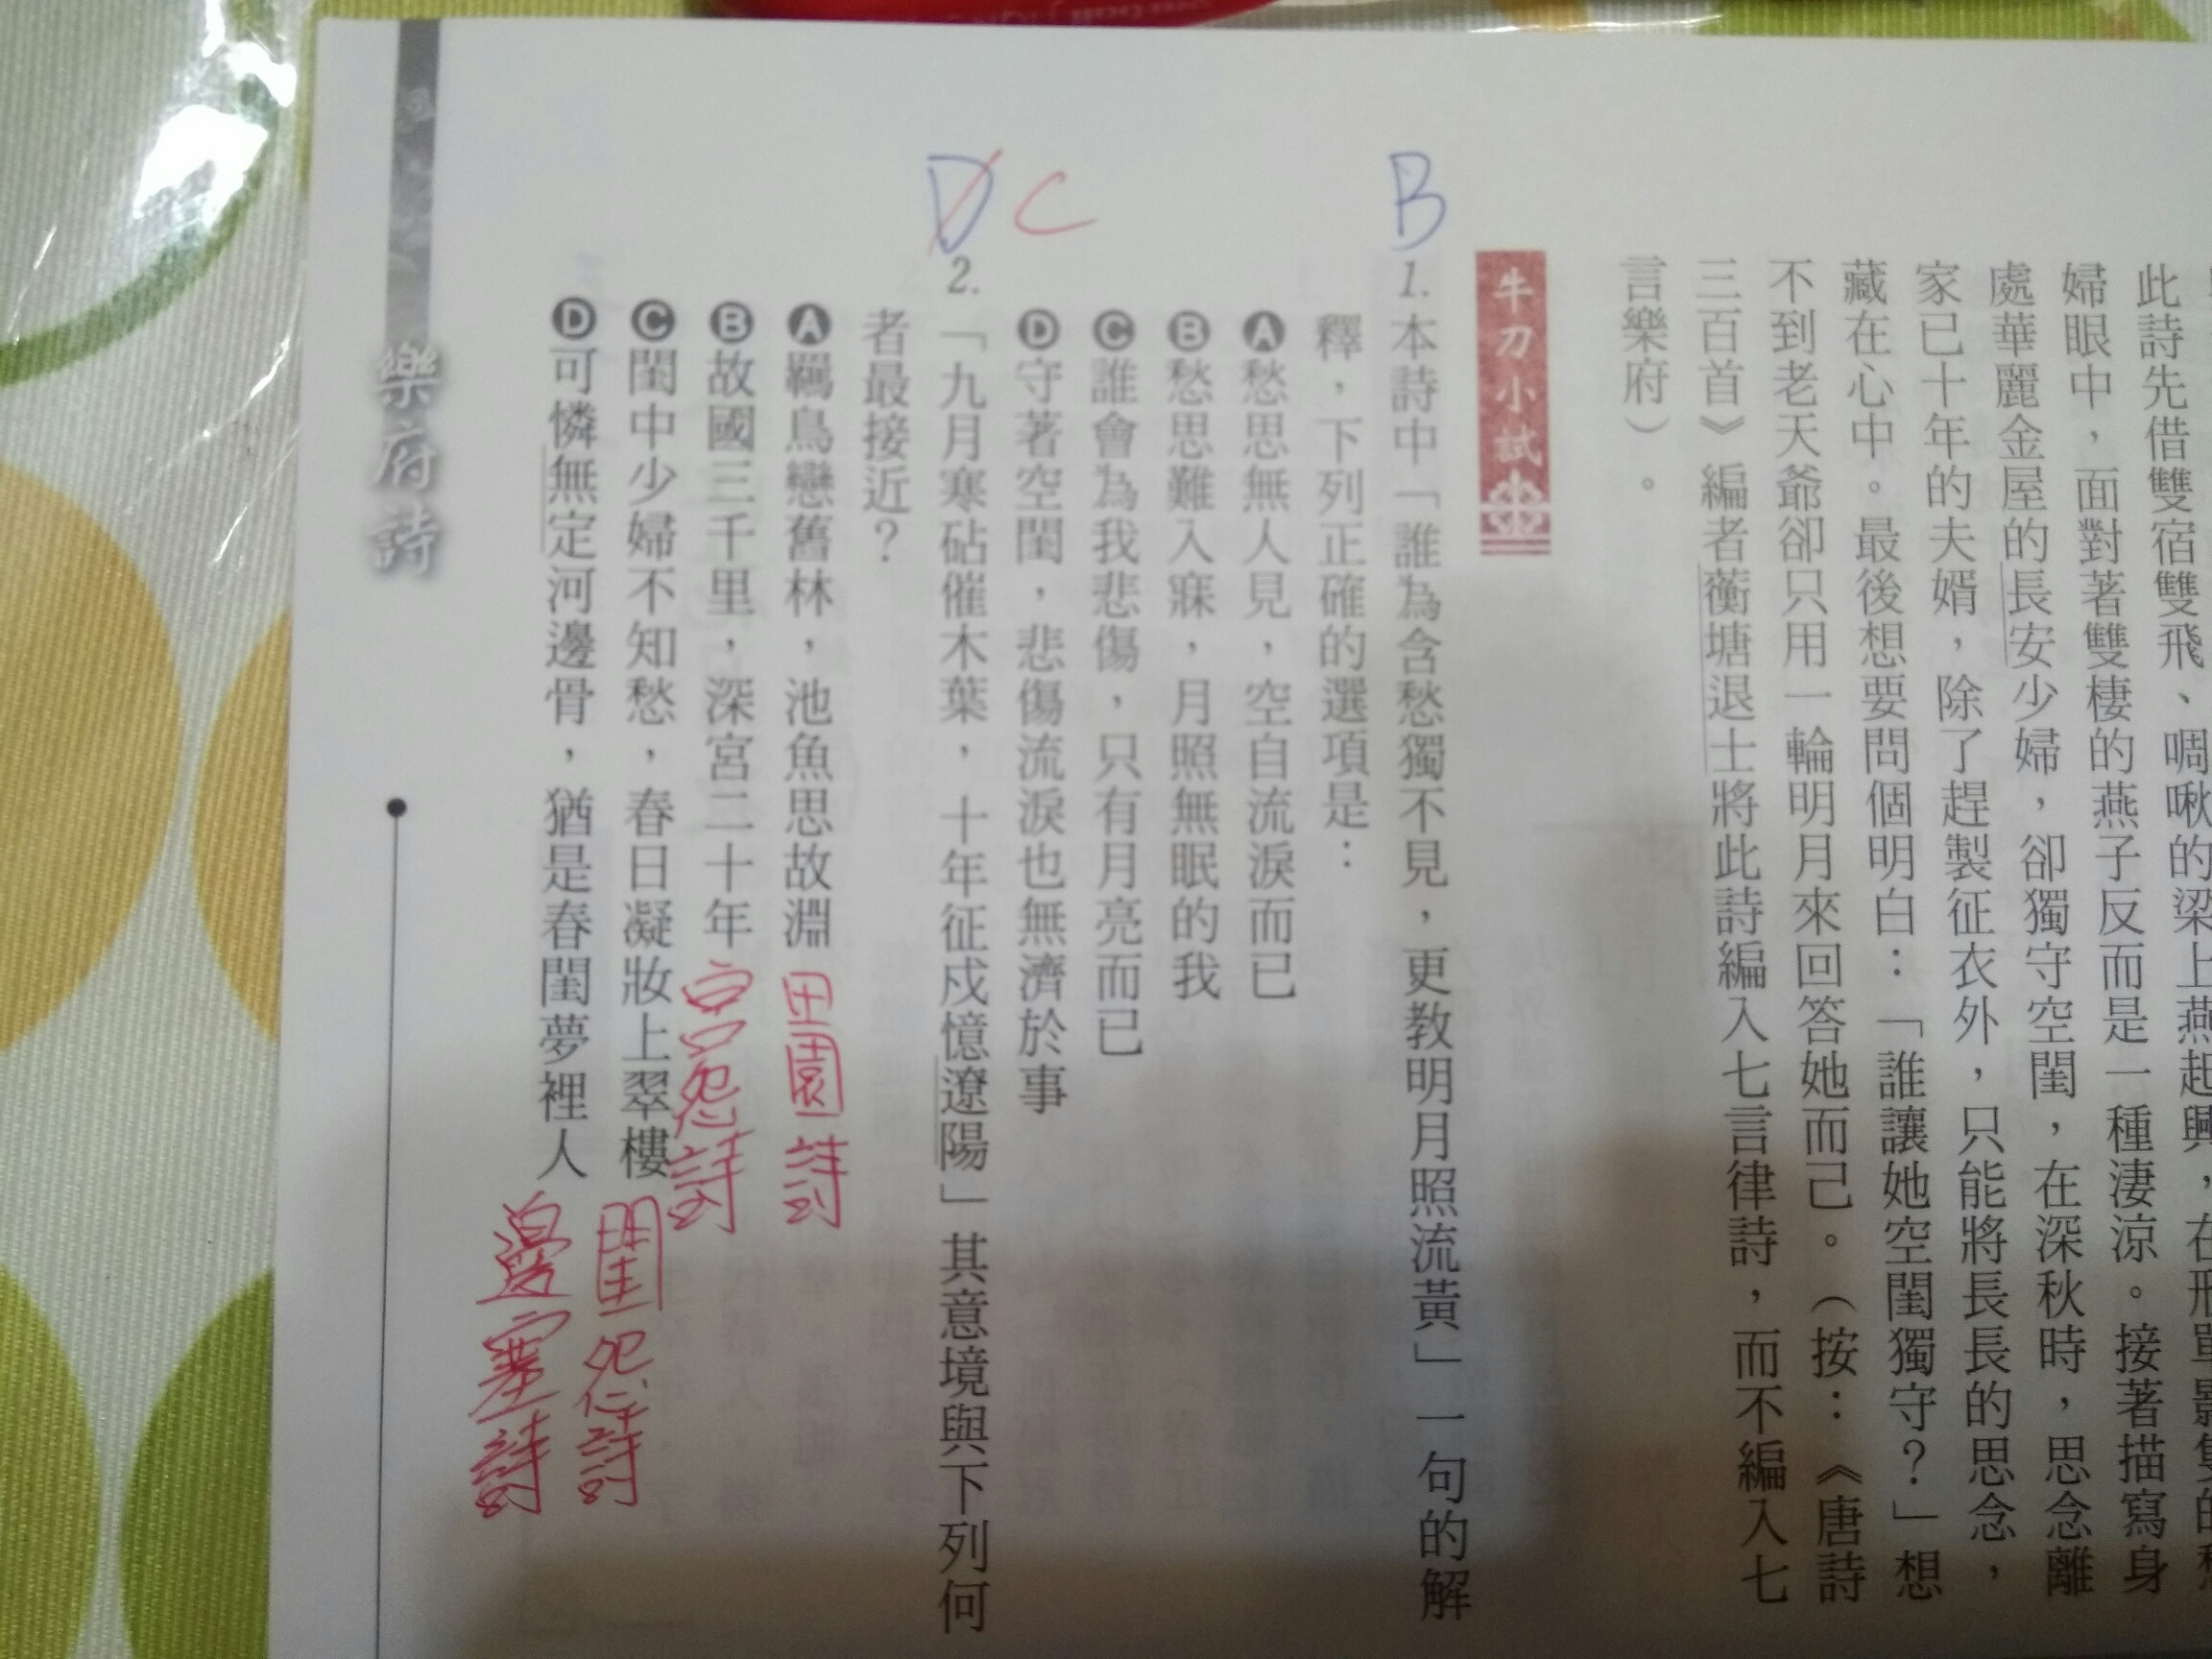 此詩先借雙宿雙飛、啁啾的梁上燕起興，在形單影隻的
婦眼中，面對著雙棲的燕子反而是一種淒涼。接著描寫身
處華麗金屋的長安少婦，卻獨守空閨，在深秋時，思念離
家已十年的夫婿，除了趕製征衣外，只能將長長的思念，
藏在心中。最後想要問個明白：「誰讓她空閨獨守？」想
不到老天爺卻只用一輪明月來回答她而已。（按：《唐詩
三百首》編者蘅塘退士將此詩編入七言律詩，而不編入七
言樂府）。
牛刀小試
B
1.本詩中「誰為含愁獨不見，更教明月照流黃」一句的解
釋，下列正確的選項是：
A愁思無人見，空自流淚而已
B愁思難入寐，月照無眠的我
C誰會為我悲傷，只有月亮而已
D守著空閨，悲傷流淚也無濟於事
D C
2.「九月寒砧催木葉，十年征戍憶遼陽」其意境與下列何
者最接近？
A羈鳥戀舊林，池魚思故淵 田園詩
B故國三千里，深宮二十年 宮怨詩
C閨中少婦不知愁，春日凝妝上翠樓 閨怨詩
D可憐無定河邊骨，猶是春閨夢裡人 邊塞詩
樂府詩